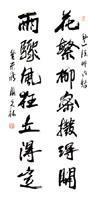 花繁柳密撥得開
雨驟風狂立得定